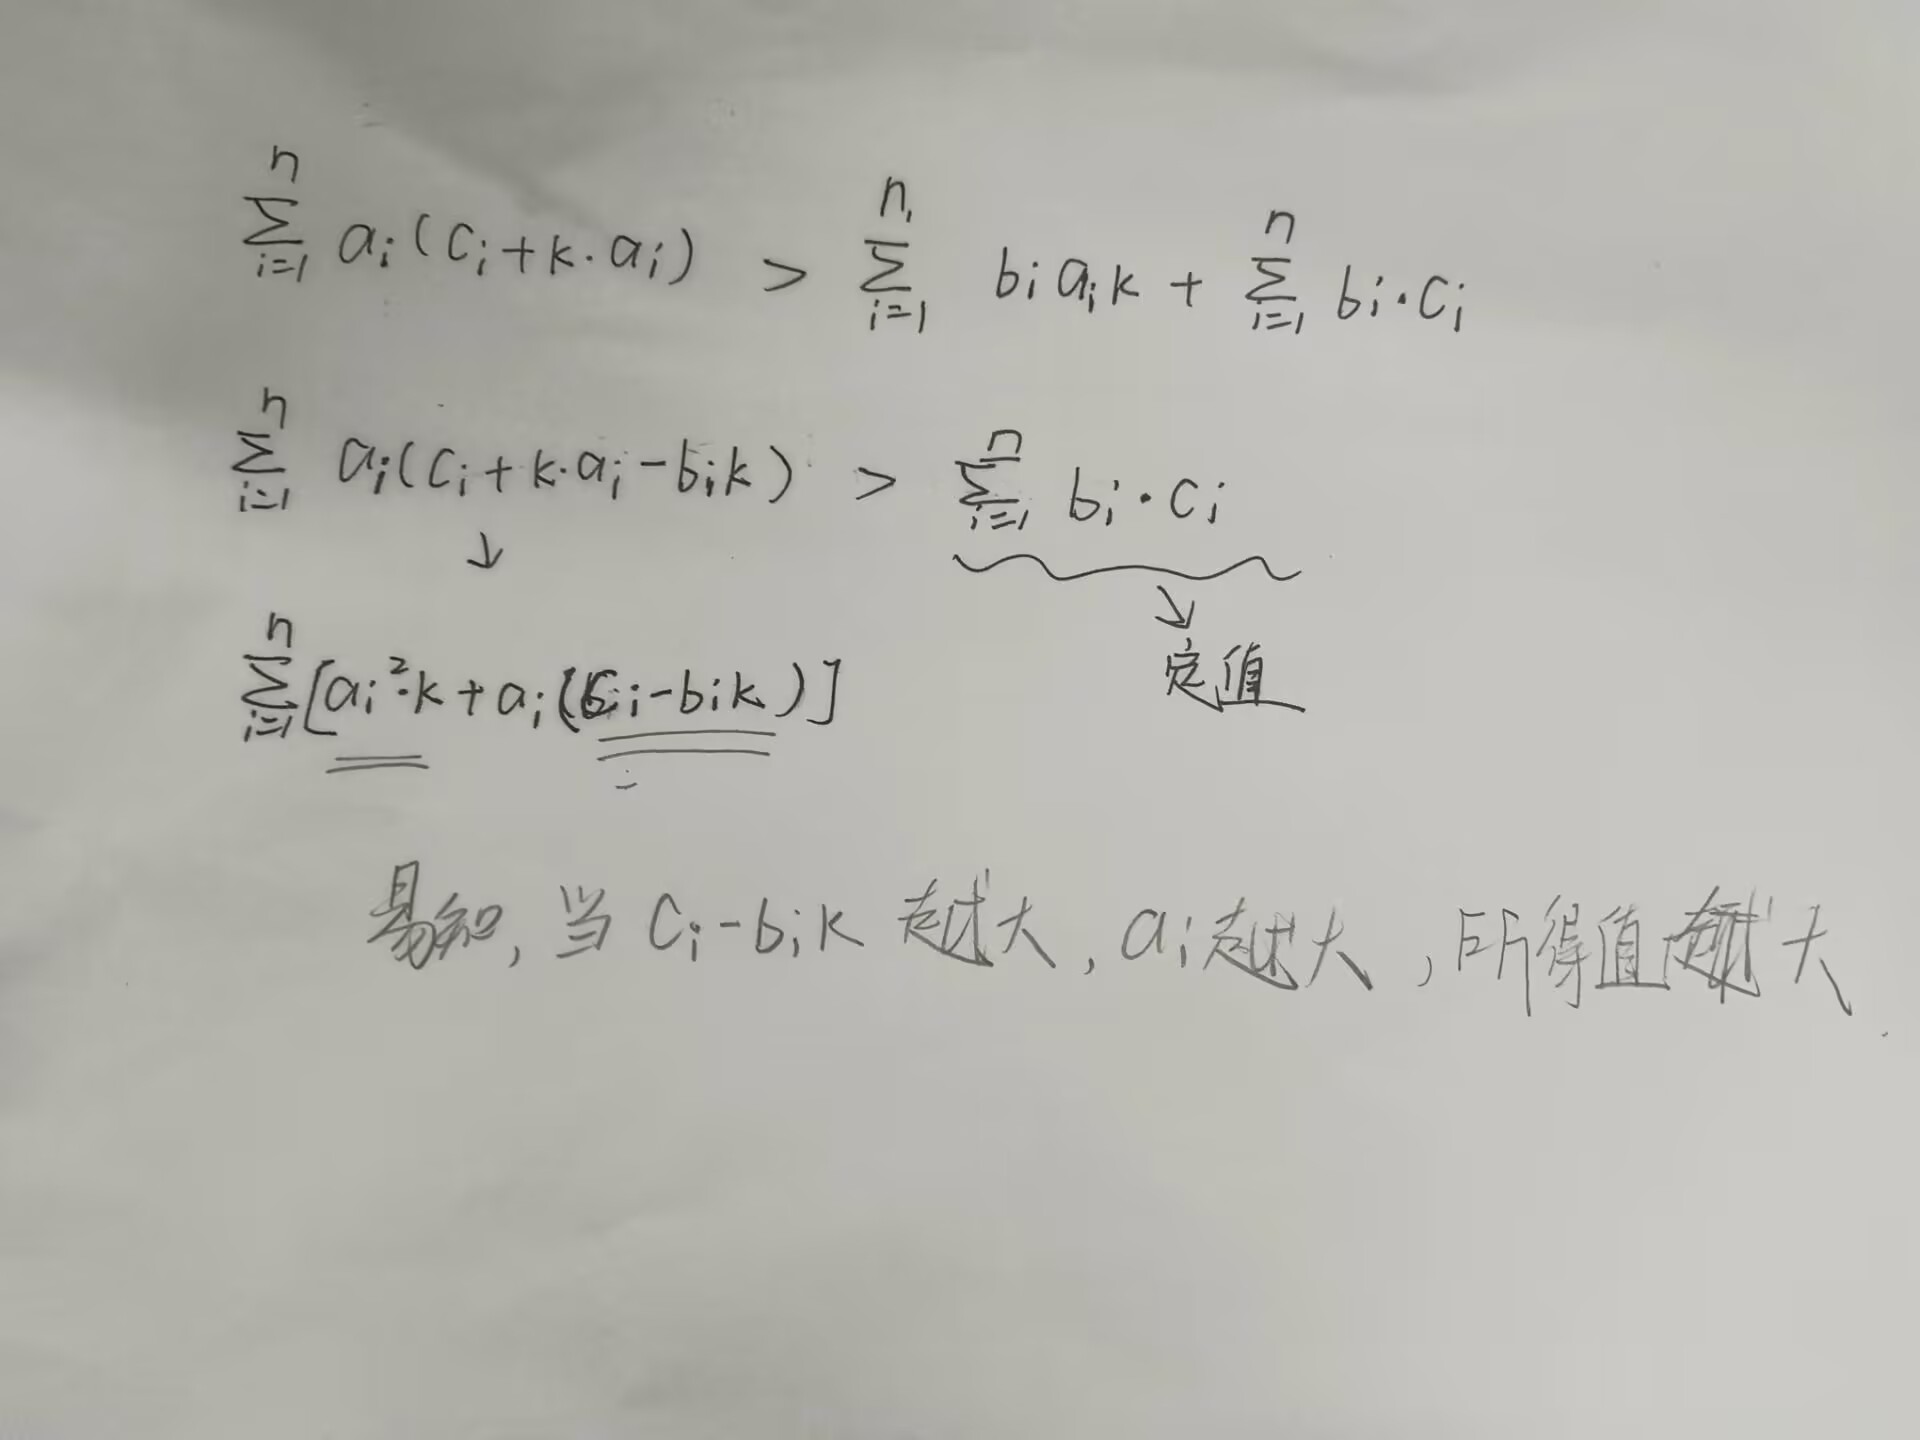 \sum_{i=1}^{n} a_i(c_i+k·a_i) > \sum_{i=1}^{n} b_i a_i k + \sum_{i=1}^{n} b_i·c_i
\sum_{i=1}^{n} a_i(c_i+k·a_i-b_i k) > \sum_{i=1}^{n} b_i·c_i
↓ ↘
\sum_{i=1}^{n} [a_i^2·k+a_i(c_i-b_i k)] 定值
易知,当 c_i-b_i k 越大, a_i 越大,所得值越大